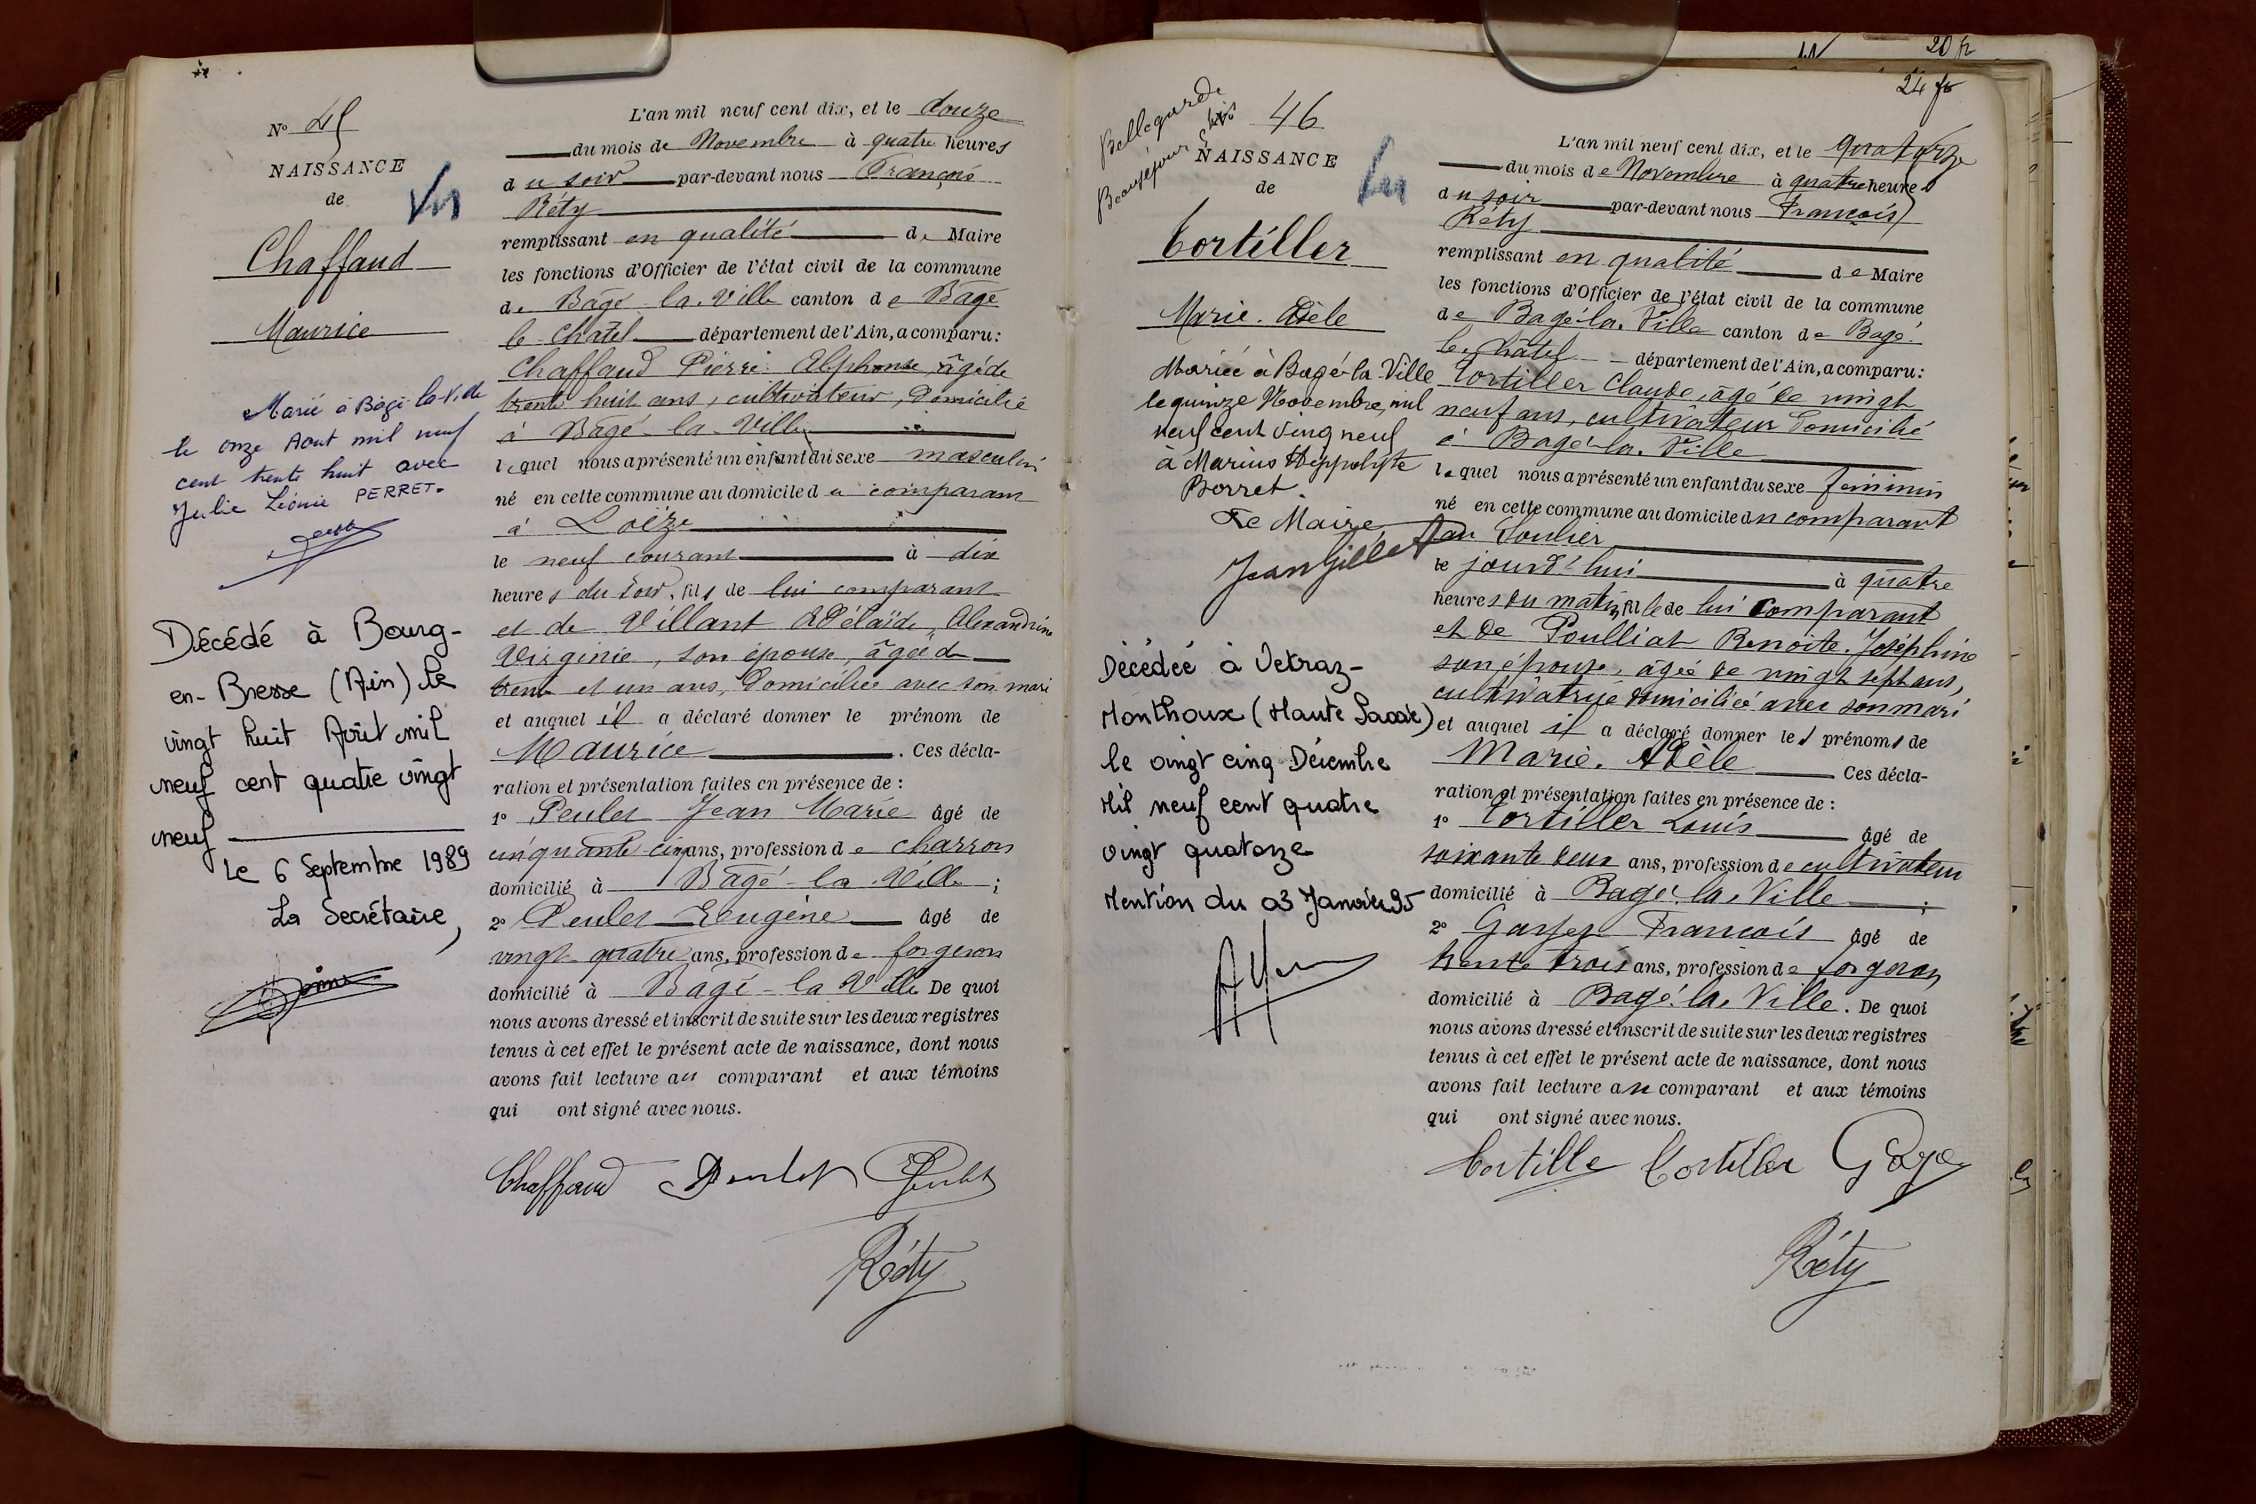 N° 45
NAISSANCE
de
Chaffaud
Maurice
Marié à Bâgé-la-V.de
le onze Aout mil neuf
cent trente huit avec
Julie Léonie PERRET.
Décédé à Bourg-
en-Bresse (Ain) le
vingt huit Août mil
neuf cent quatre vingt
neuf
Le 6 Septembre 1989
La Secrétaire,
L'an mil neuf cent dix, et le douze
du mois de Novembre à quatre heures
du soir par-devant nous François
Réty
remplissant en qualité de Maire
les fonctions d'Officier de l'état civil de la commune
de Bâgé-la-Ville canton de Bâgé
le Châtel département de l'Ain, a comparu:
Chaffaud Pierre Alphonse, âgé de
trente huit ans, cultivateur, domicilié
à Bâgé-la-Ville
lequel nous a présenté un enfant du sexe masculin
né en cette commune au domicile du comparant
à Loëze
le neuf courant à dix
heures du soir, fils de lui comparant
et de Villant Adélaïde, Alexandrine
Virginie, son épouse, âgée de
trente et un ans, domiciliée avec son mari
et auquel il a déclaré donner le prénom de
Maurice. Ces décla-
ration et présentation faites en présence de :
1° Peulet Jean Marie âgé de
cinquante cinq ans, profession de charron
domicilié à Bâgé-la-Ville ;
2° Peulet Eugène âgé de
vingt quatre ans, profession de forgeron
domicilié à Bâgé-la Ville De quoi
nous avons dressé et inscrit de suite sur les deux registres
tenus à cet effet le présent acte de naissance, dont nous
avons fait lecture au comparant et aux témoins
qui ont signé avec nous.
Chaffaud Peulet Peulet
Réty
20 fr
24 fr
Bellegarde
Beauséjour
46
NAISSANCE
de
Cortiller
Marie. Adèle
Mariée à Bagé-la-Ville
le quinze Novembre, mil
neuf cent vingt neuf
à Marius Hippolyte
Berret.
Le Maire
Jean Gillet
Décédée à Vetraz-
Monthoux (Haute Savoie)
le vingt cinq Décembre
Mil neuf cent quatre
vingt quatorze
Mention du 03 Janvier 95
L'an mil neuf cent dix, et le quatorze
du mois de Novembre à quatre heures
du soir par-devant nous François
Réty
remplissant en qualité de Maire
les fonctions d'Officier de l'état civil de la commune
de Bagé-la-Ville canton de Bagé-
le-Châtel département de l'Ain, a comparu:
Cortiller Claude, âgé de vingt
neuf ans, cultivateur domicilié
à Bagé-la-Ville
lequel nous a présenté un enfant du sexe féminin
né en cette commune au domicile du comparant
au Soulier
le jourd'hui à quatre
heures du matin, fille de lui comparant
et de Poulliat Benoite, Joséphine
son épouse, âgée de vingt sept ans,
cultivatrice domiciliée avec son mari
et auquel il a déclaré donner les prénoms de
Marie. Adèle Ces décla-
ration et présentation faites en présence de :
1° Cortiller Louis âgé de
soixante deux ans, profession de cultivateur
domicilié à Bagé-la-Ville ;
2° François âgé de
trente trois ans, profession de forgeron
domicilié à Bagé-la-Ville. De quoi
nous avons dressé et inscrit de suite sur les deux registres
tenus à cet effet le présent acte de naissance, dont nous
avons fait lecture au comparant et aux témoins
qui ont signé avec nous.
Cortille Cortiller
Réty